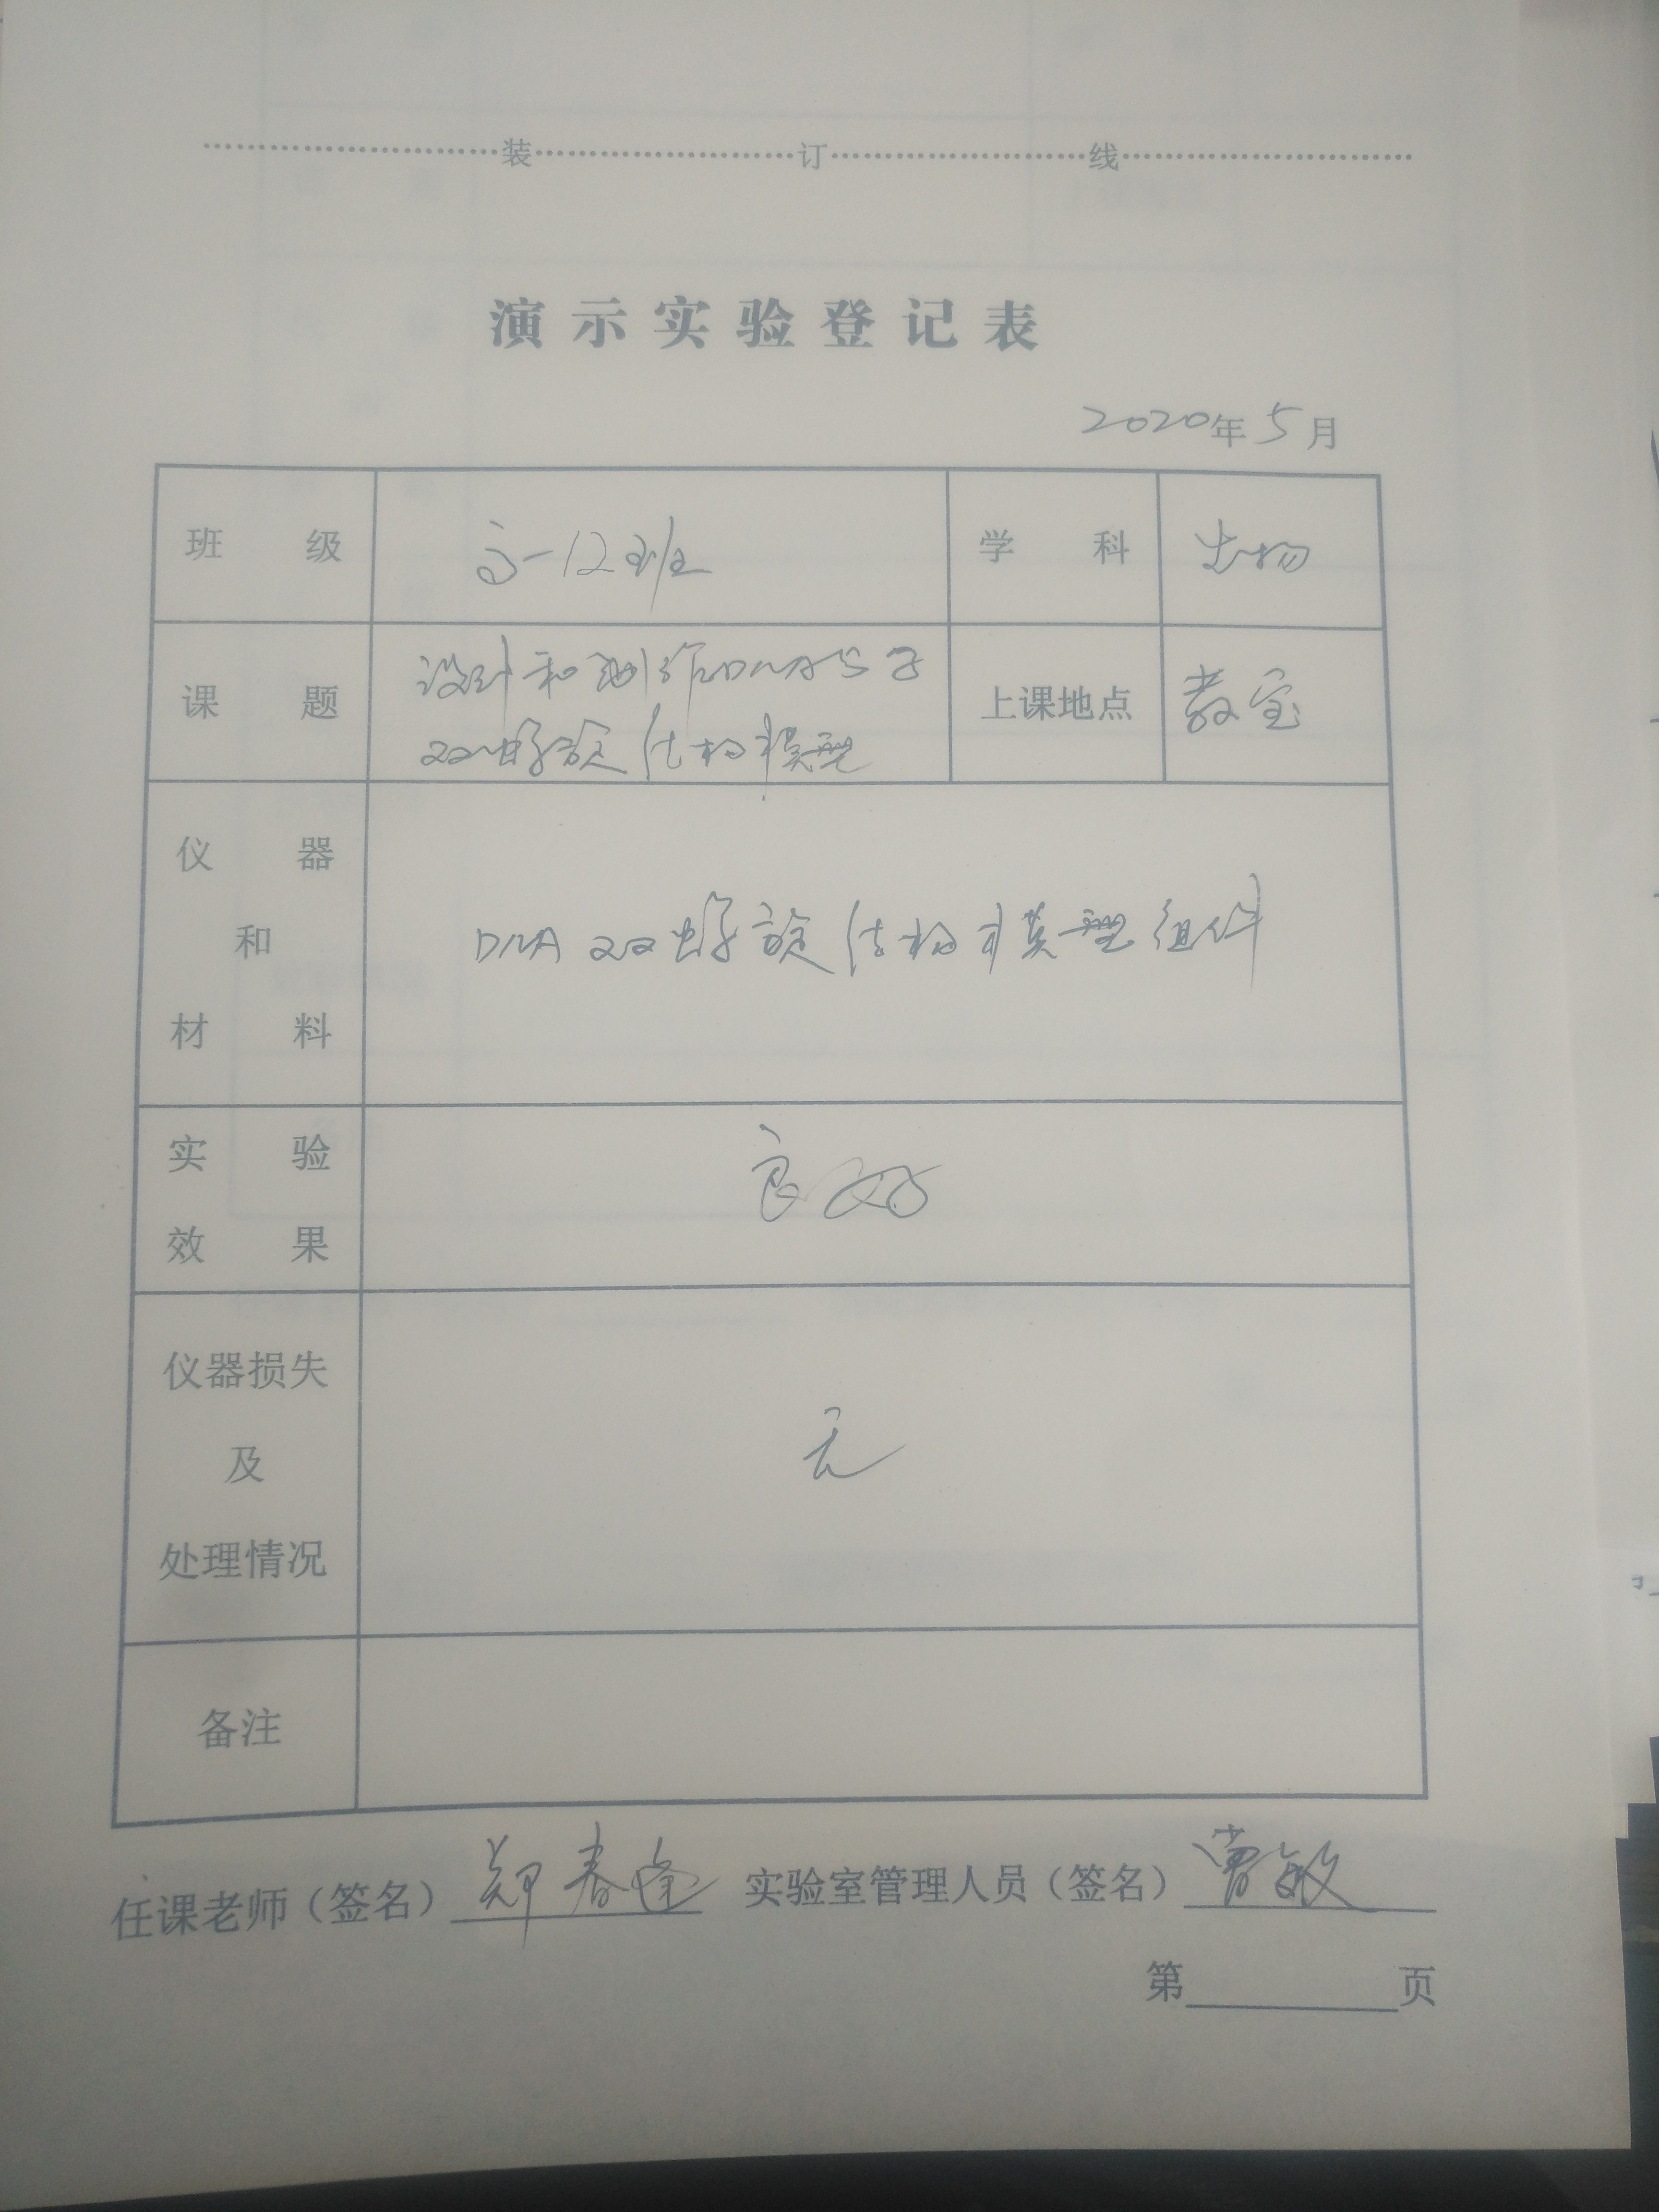 装订线
演示实验登记表
2020年5月
班级 高一12班 学科 生物
课题 设计和制作DNA分子
双螺旋结构模型 上课地点 教室
仪器
和
材料
DNA双螺旋结构模型组件
实验
效果
良好
仪器损失
及
处理情况
无
备注
任课老师（签名） 郑春逢 实验室管理人员（签名） 曹敏
第 页